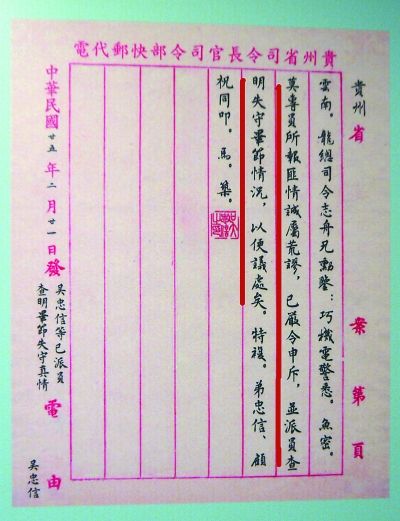 貴州省司令長官司令部快郵代電
貴州省 案第 頁
雲南。龍總司令志舟兄勳鑒：巧機電警悉。魚密。
莫專員所報匪情誠屬荒謬，已嚴令申斥，並派員查
明失守畢節情況，以便議處矣。特複。弟忠信、顧
祝同叩。馬。築。
中華民國廿五年二月廿一日發電由
吳忠信等已派員
查明畢節失守真情
吳忠信